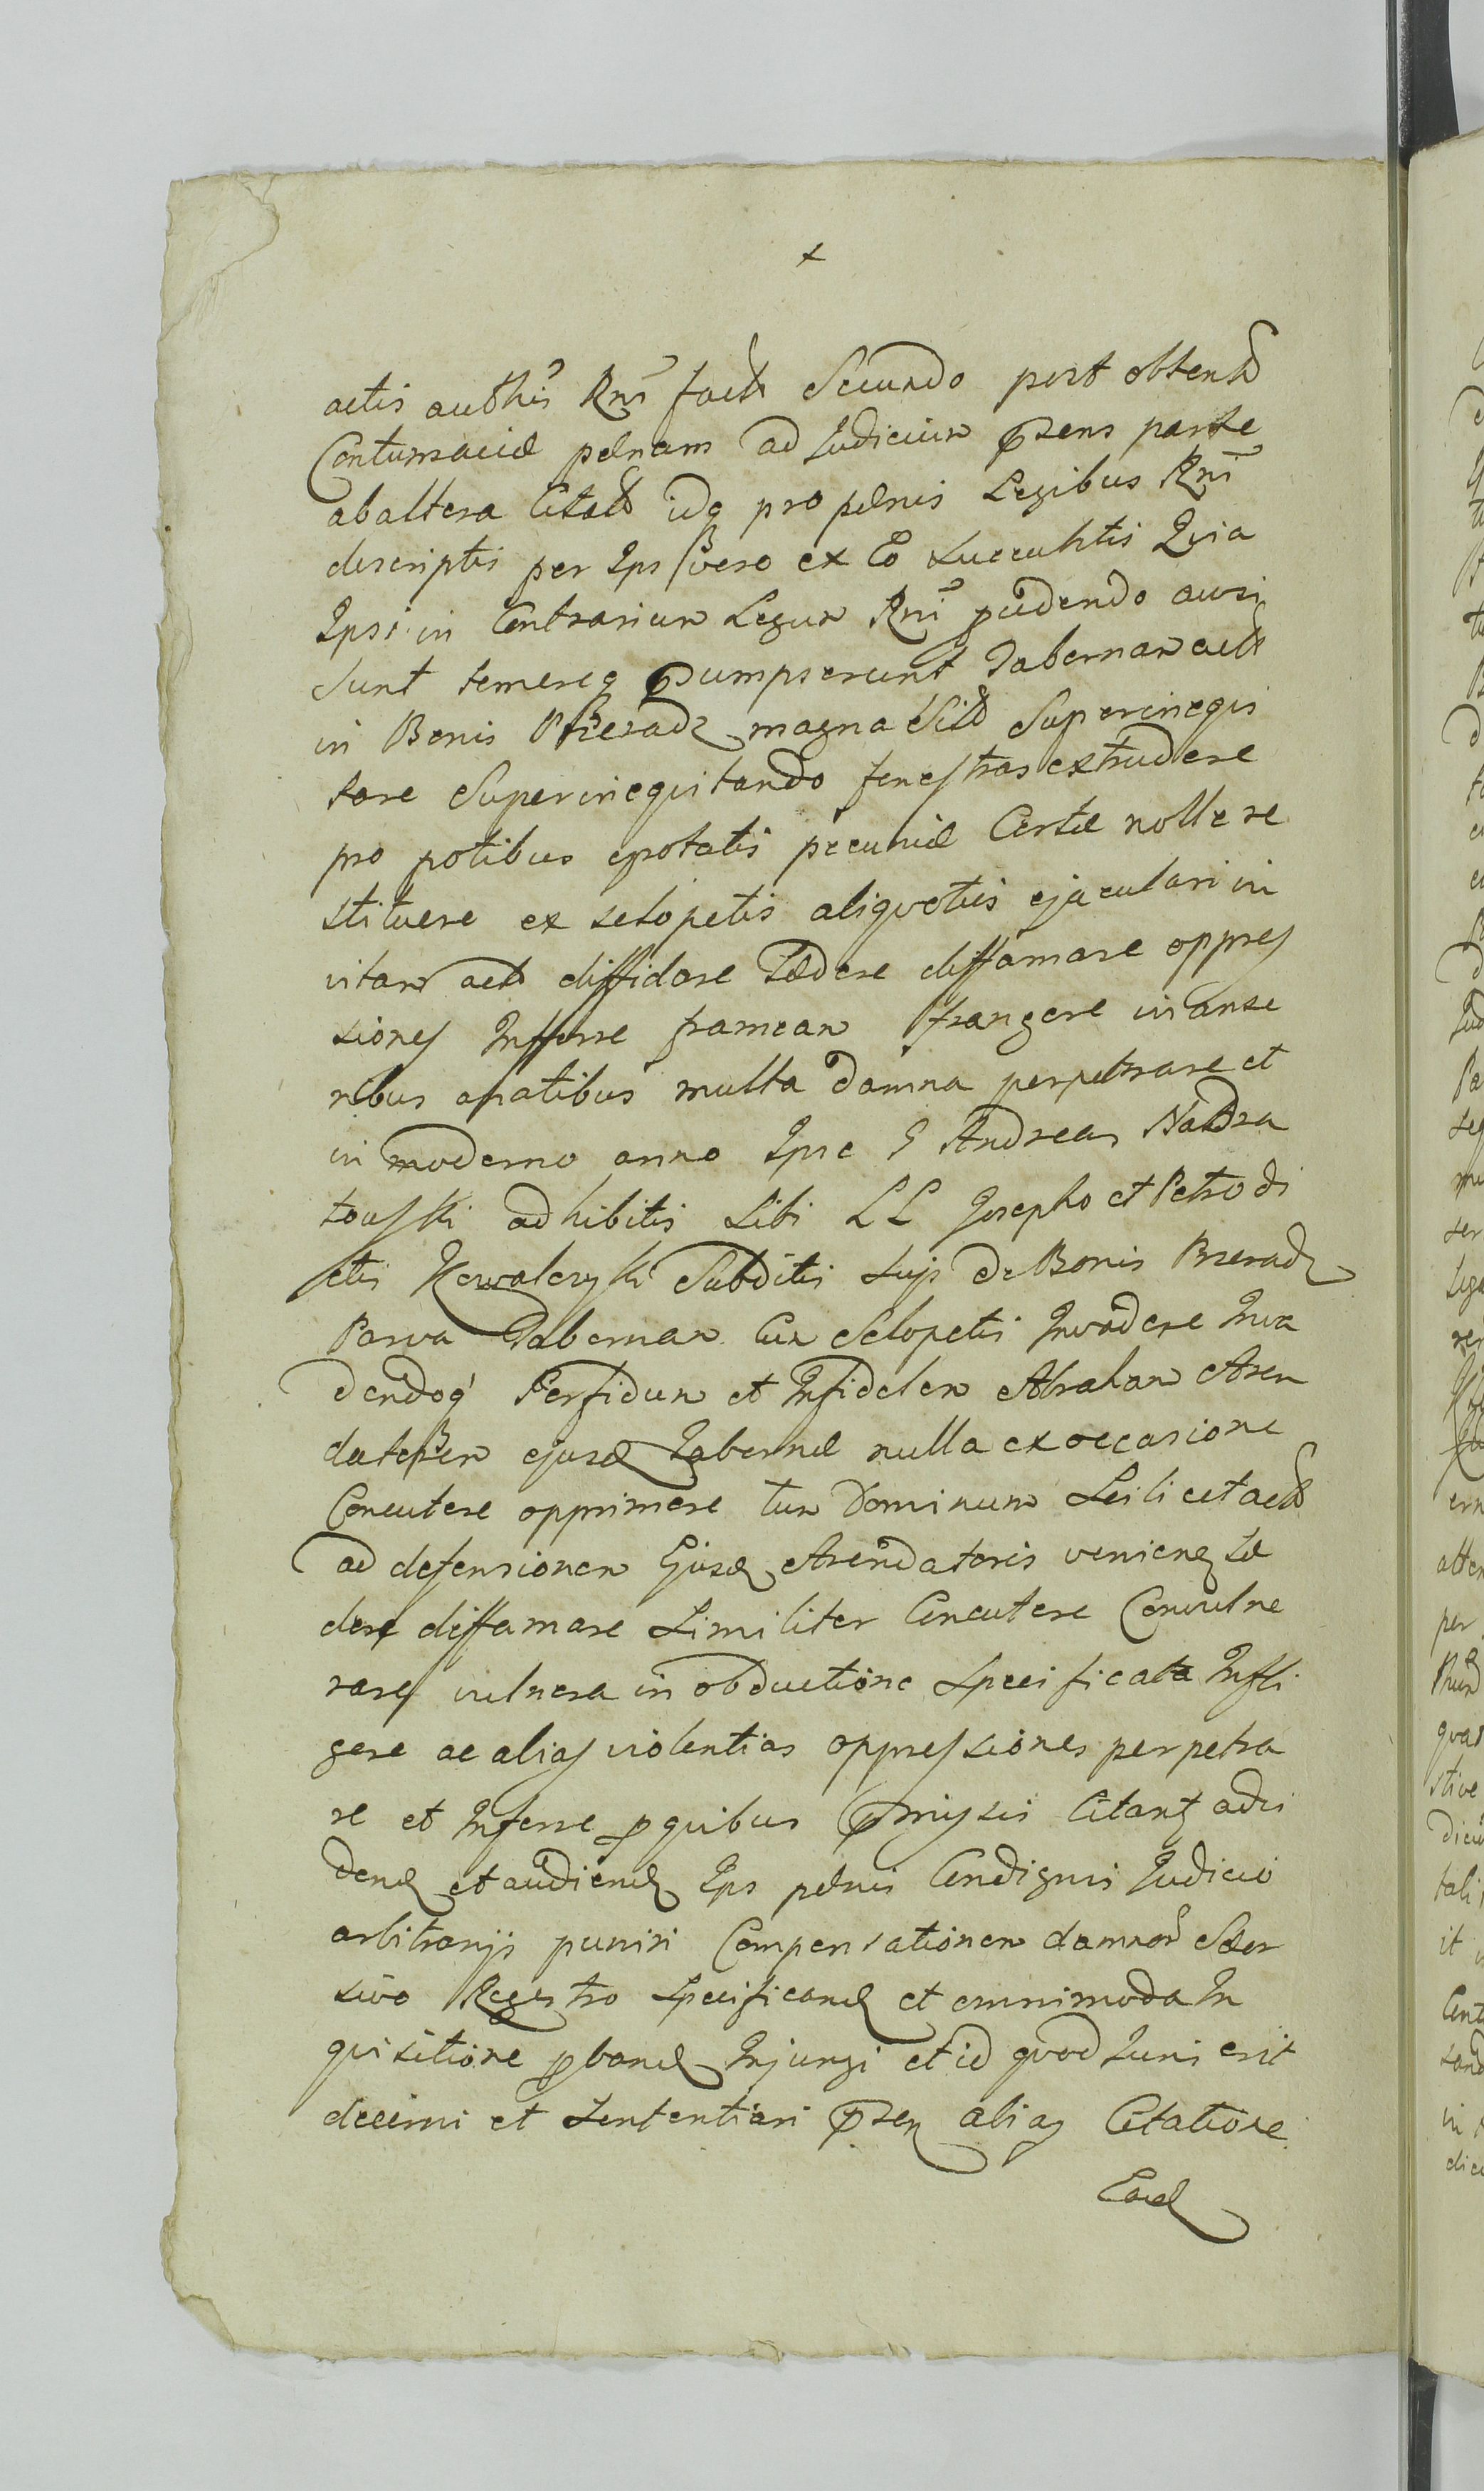 x
actis authis Rni factr Secundo post obtentr
Contumaciæ pænam ad Judicium pnsens parte
ab altera Citatr idq pro pænis Legibus Rni
descriptis per Ips vero ex Eo Luccubitis Quia
Ipsi in Contrarium Legum Rni pudendo ausi
Sunt temereq psumpserunt Tabernam actr
in Bonis Brzeradz magna Sitr Superinequi
tare Superinequitando fenestras extrudere
pro potibus epotatis pecuniæ Certæ nolle re
stituere ex sclopetis aliquotiis ejaculari in
vitam actr diffidare Lædere diffamare oppres
siones Inferre frameam frangere in anse
ribus anatibus multa damna perpetrare et
in moderno anno Ipse G Andreas Nadra
towski adhibitis Sibi LL Josepho et Petro di
ctis Kowalczyki Subditis Suis de Bonis Brzeradz
Parva Tabernam Cum Sclopetis Invadere Inva
dendoq Perfidum et Infidelem Abraham Aren
datorem ejusd Tabernæ nulla ex occasione
Concutere opprimere tum Dominum Scilicet actr
ad defensionem Ejusd Arendatoris venien Læ
dere diffamare Similiter Concutere Convulne
rare vulnera in obductione Specificata Infli
gere ac alias violentias oppressiones perpetra
re et Inferre pquibus pmissis Citant advi
dend et audiend Ips pænis Condignis Judicio
arbitrarijs puniri Compensationem damnor Seor
sivo Registro Specificand et omnimoda In
quisitione pband Injungi et id quod Juris erit
decerni et Sententiari pnsen alias Citatione
Eand